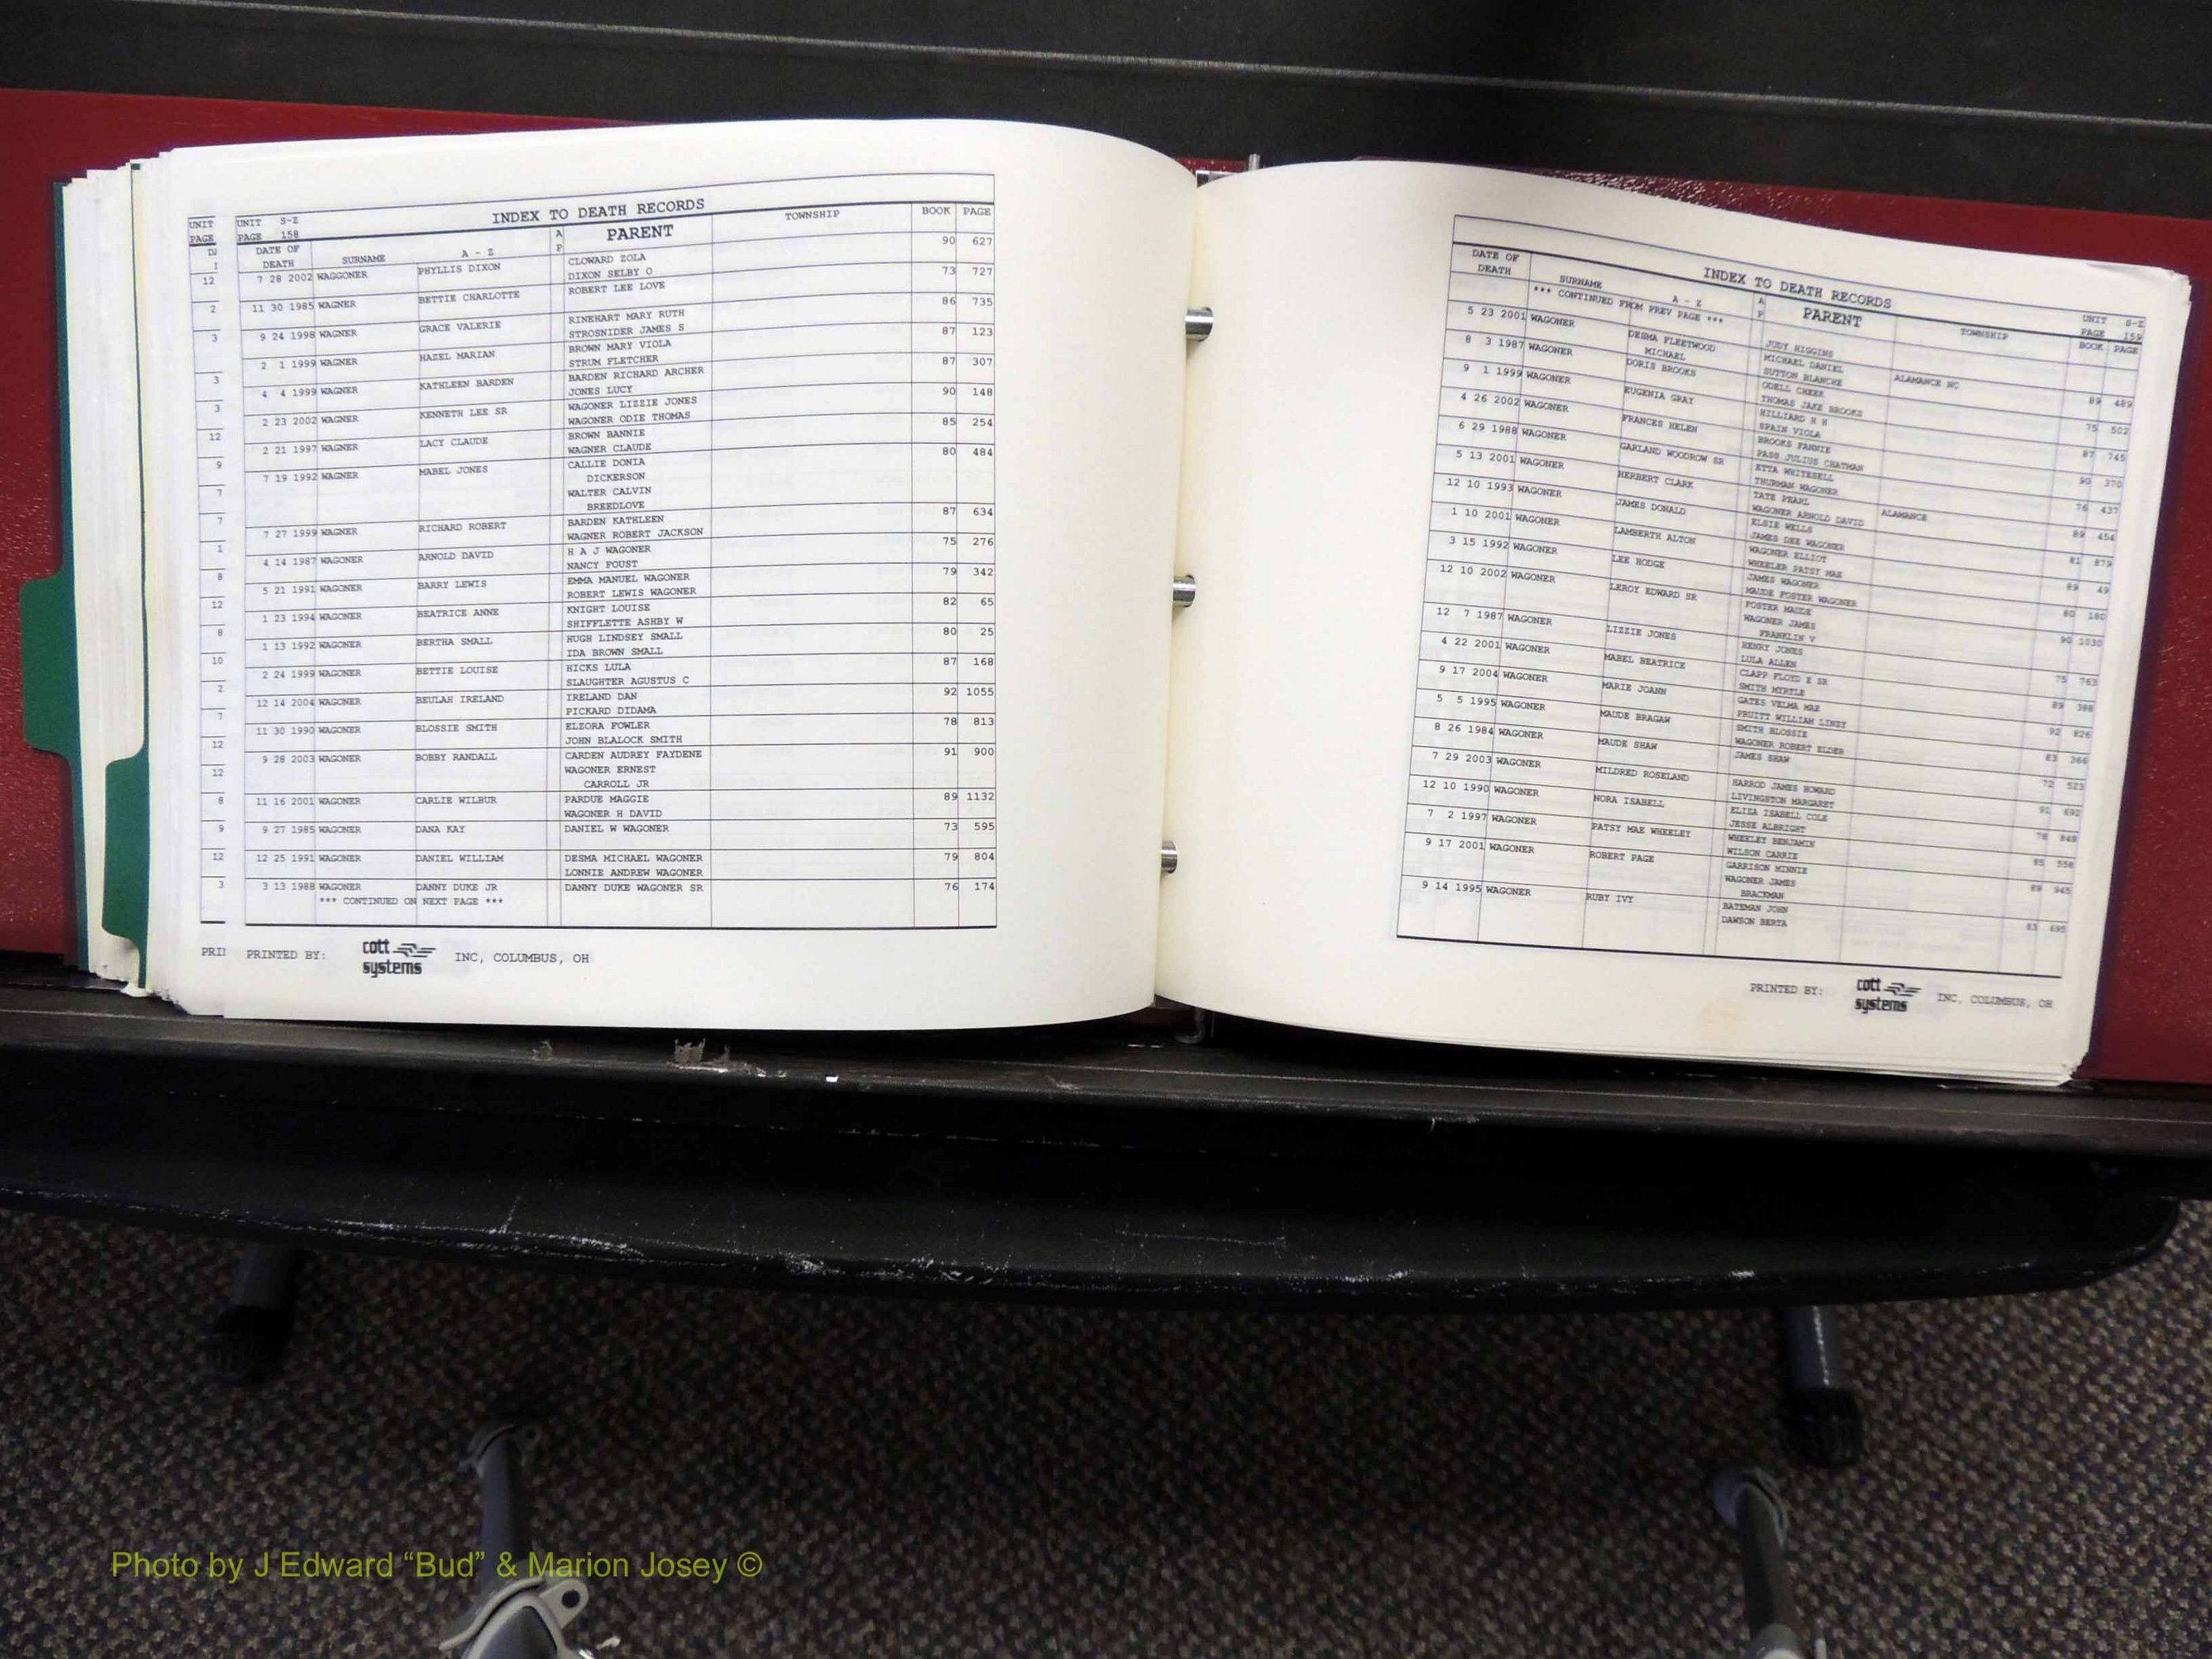 UNIT
PAGE
UNIT S-Z
PAGE 158
INDEX TO DEATH RECORDS
DATE OF DEATH SURNAME A - Z A P PARENT TOWNSHIP BOOK PAGE
7 28 2002 WAGGONER PHYLLIS DIXON CLOWARD ZOLA 90 627
DIXON SELBY O
11 30 1985 WAGNER BETTIE CHARLOTTE ROBERT LEE LOVE 73 727
9 24 1998 WAGNER GRACE VALERIE RINEHART MARY RUTH 86 735
STROSNIDER JAMES S
2 1 1999 WAGNER HAZEL MARIAN BROWN MARY VIOLA 87 123
STRUM FLETCHER
4 4 1999 WAGNER KATHLEEN BARDEN BARDEN RICHARD ARCHER 87 307
JONES LUCY
2 23 2002 WAGNER KENNETH LEE SR WAGONER LIZZIE JONES 90 148
WAGONER ODIE THOMAS
2 21 1997 WAGNER LACY CLAUDE BROWN BANNIE 85 254
WAGNER CLAUDE
7 19 1992 WAGNER MABEL JONES CALLIE DONIA 80 484
DICKERSON
WALTER CALVIN
BREEDLOVE
7 27 1999 WAGNER RICHARD ROBERT BARDEN KATHLEEN 87 634
WAGNER ROBERT JACKSON
4 14 1987 WAGONER ARNOLD DAVID H A J WAGONER 75 276
NANCY FOUST
5 21 1991 WAGONER BARRY LEWIS EMMA MANUEL WAGONER 79 342
ROBERT LEWIS WAGONER
1 23 1994 WAGONER BEATRICE ANNE KNIGHT LOUISE 82 65
SHIFFLETTE ASHBY W
1 13 1992 WAGONER BERTHA SMALL HUGH LINDSEY SMALL 80 25
IDA BROWN SMALL
2 24 1999 WAGONER BETTIE LOUISE HICKS LULA 87 168
SLAUGHTER AGUSTUS C
12 14 2004 WAGONER BEULAH IRELAND IRELAND DAN 92 1055
PICKARD DIDAMA
11 30 1990 WAGONER BLOSSIE SMITH ELZORA FOWLER 78 813
JOHN BLALOCK SMITH
9 28 2003 WAGONER BOBBY RANDALL CARDEN AUDREY FAYDENE 91 900
WAGONER ERNEST
CARROLL JR
11 16 2001 WAGONER CARLIE WILBUR PARDUE MAGGIE 89 1132
WAGONER H DAVID
9 27 1985 WAGONER DANA KAY DANIEL W WAGONER 73 595
12 25 1991 WAGONER DANIEL WILLIAM DESMA MICHAEL WAGONER 79 804
LONNIE ANDREW WAGONER
3 13 1988 WAGONER DANNY DUKE JR DANNY DUKE WAGONER SR 76 174
*** CONTINUED ON NEXT PAGE ***
PRINTED BY: cott systems INC, COLUMBUS, OH
INDEX TO DEATH RECORDS
UNIT S-Z
PAGE 159
DATE OF DEATH SURNAME A - Z A P PARENT TOWNSHIP BOOK PAGE
*** CONTINUED FROM PREV PAGE ***
JUDY HIGGINS
5 23 2001 WAGONER DESMA FLEETWOOD MICHAEL DANIEL ALAMANCE NC 89 489
MICHAEL SUTTON BLANCHE
8 3 1987 WAGONER DORIS BROOKS ODELL CHEEK 75 502
THOMAS JAKE BROOKS
9 1 1999 WAGONER EUGENIA GRAY HILLIARD H H 87 745
SPAIN VIOLA
4 26 2002 WAGONER FRANCES HELEN BROOKS FANNIE 90 370
PASS JULIUS CHATMAN
6 29 1988 WAGONER GARLAND WOODROW SR ETTA WHITESELL 76 437
THURMAN WAGONER
5 13 2001 WAGONER HERBERT CLARK TATE PEARL ALAMANCE 89 454
WAGONER ARNOLD DAVID
12 10 1993 WAGONER JAMES DONALD ELSIE WELLS 81 879
JAMES DEE WAGONER
1 10 2001 WAGONER LAMBERTH ALTON WAGONER ELLIOT 89 49
WHEELER PATSY MAE
3 15 1992 WAGONER LEE HODGE JAMES WAGONER 80 180
MAUDE FOSTER WAGONER
12 10 2002 WAGONER LEROY EDWARD SR FOSTER MAUDE 90 1030
WAGONER JAMES
FRANKLIN V
12 7 1987 WAGONER LIZZIE JONES HENRY JONES 75 763
LULA ALLEN
4 22 2001 WAGONER MABEL BEATRICE CLAPP FLOYD E SR 89 388
SMITH MYRTLE
9 17 2004 WAGONER MARIE JOANN GATES VELMA MAE 92 826
PRUITT WILLIAM LINDY
5 5 1995 WAGONER MAUDE BRAGAW SMITH BLOSSIE 83 366
WAGONER ROBERT ELDER
8 26 1984 WAGONER MAUDE SHAW JAMES SHAW 72 523
7 29 2003 WAGONER MILDRED ROSELAND HARROD JAMES HOWARD 91 692
LIVINGSTON MARGARET
12 10 1990 WAGONER NORA ISABELL ELIZA ISABELL COLE 78 848
JESSE ALBRIGHT
7 2 1997 WAGONER PATSY MAE WHEELEY WHEELEY BENJAMIN 85 558
WILSON CARRIE
9 17 2001 WAGONER ROBERT PAGE GARRISON MINNIE 89 945
WAGONER JAMES
BRACKMAN
9 14 1995 WAGONER RUBY IVY BATEMAN JOHN 83 695
DAWSON BERTA
PRINTED BY: cott systems INC, COLUMBUS, OH
Photo by J Edward “Bud” & Marion Josey ©